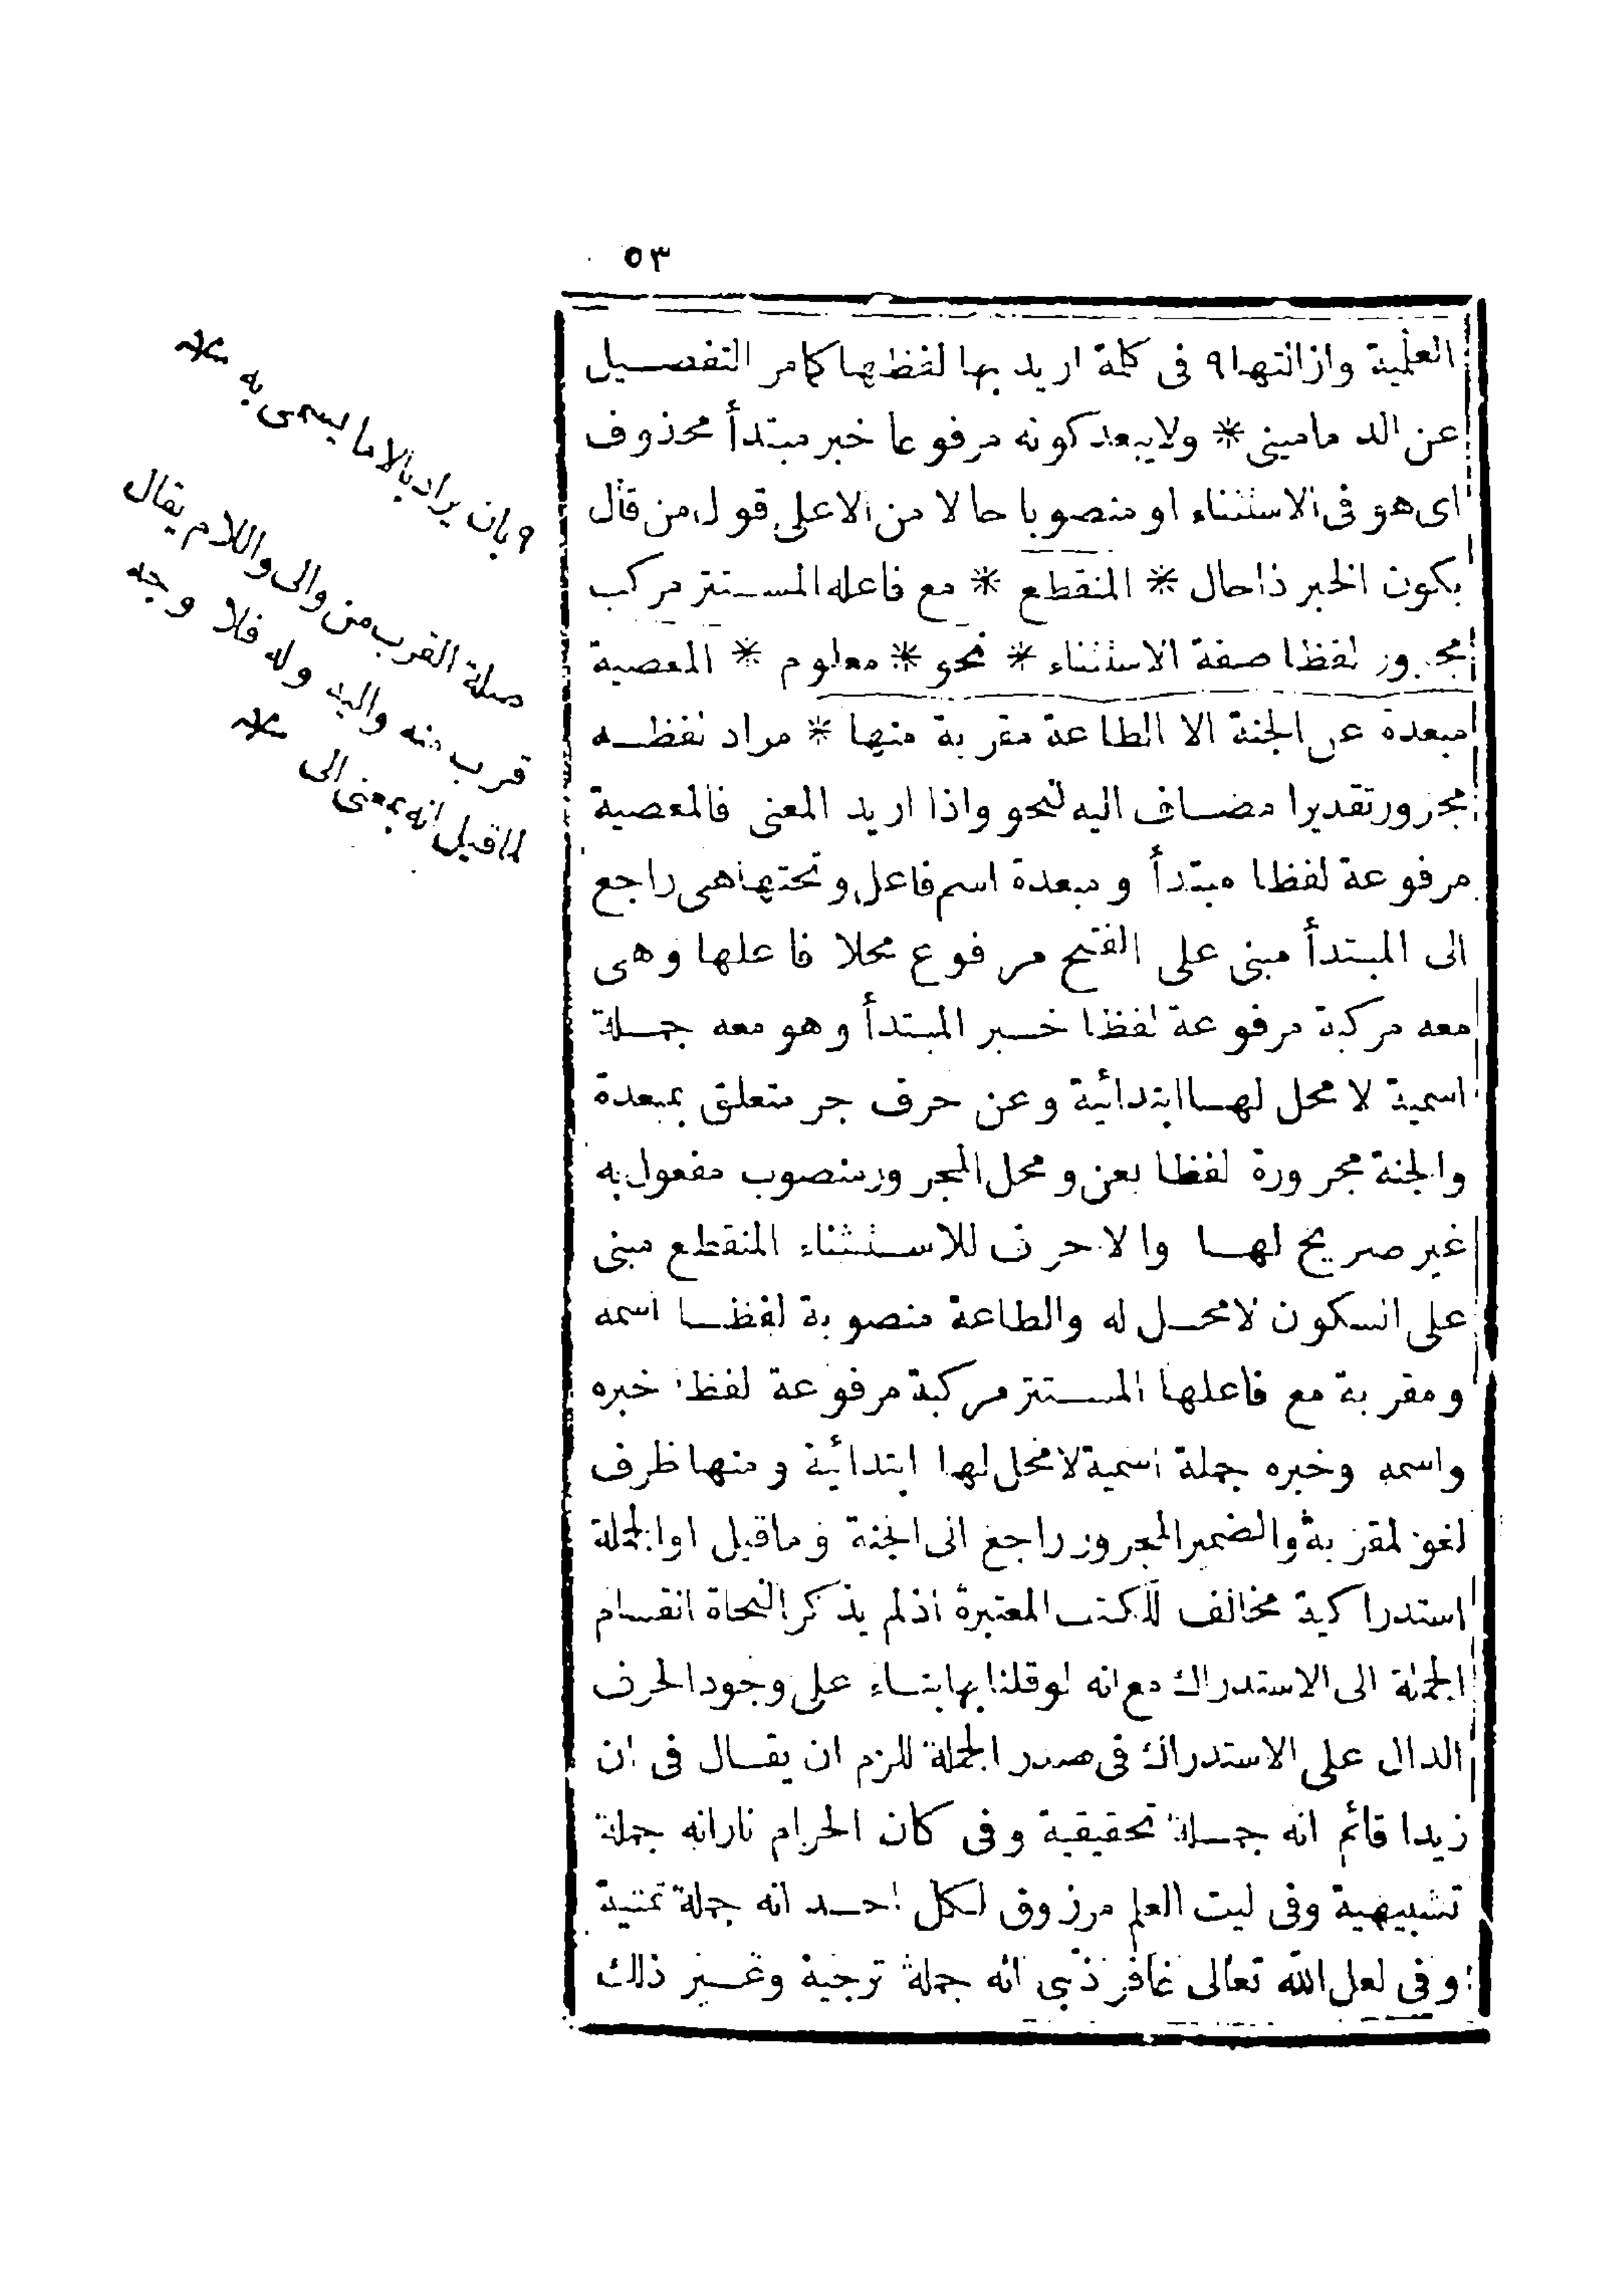 ٥٣
العلمية وازالتها ٩ فى كلمة اريد بها لفظها كمامر التفصيل
عن الدمامينى * ولايبعد كونه مرفوعا خبر مبتدأ محذوف
اى هو فى الاستثناء او منصوبا حالا من الاعلى قول من قال
بكون الخبر ذاحال * المنقطع * مع فاعله المستتر مركب
مجرور لفظا صفة الاستثناء * نحو * معلوم * المعصية
مبعدة عن الجنة الا الطاعة مقربة منها * مراد لفظه
مجرور تقديرا مضاف اليه لنحو واذا اريد المعنى فالمعصية
مرفوعة لفظا مبتدأ ومبعدة اسم فاعل وتحتها هى راجع
الى المبتدأ مبنى على الفتح مرفوع محلا فاعلها وهى
معه مركبة مرفوعة لفظا خبر المبتدأ وهو معه جملة
اسمية لا محل لها ابتدائية وعن حرف جر متعلق بمبعدة
والجنة مجرورة لفظا بعن ومحل المجرور منصوب مفعول به
غير صريح لها والا حرف للاستثناء المنقطع مبنى
على السكون لامحل له والطاعة منصوبة لفظا اسمه
ومقربة مع فاعلها المستتر مركبة مرفوعة لفظا خبره
واسمه وخبره جملة اسمية لامحل لها ابتدائية ومنها ظرف
لغو لمقربة والضمير المجرور راجع الى الجنة وماقيل اوالجملة
استدراكية مخالف للكتب المعتبرة اذلم يذكر النحاة انقسام
الجملة الى الاستدراك مع انه لوقلنا بها بناء على وجود الحرف
الدال على الاستدراك فى صدر الجملة للزم ان يقال فى ان
زيدا قائم انه جملة تحقيقية وفى كان الحرام نارانه جملة
تشبيهية وفى ليت العلم مرزوق لكل احد انه جملة تمنية
وفى لعل الله تعالى غافر ذنبى انه جملة ترجية وغير ذلك
٩ بان يراد بالا ما يسمى به *
صلة القرب من والى واللام يقال
قرب منه واليه وله فلا وجه
لماقيل انه بمعنى الى *